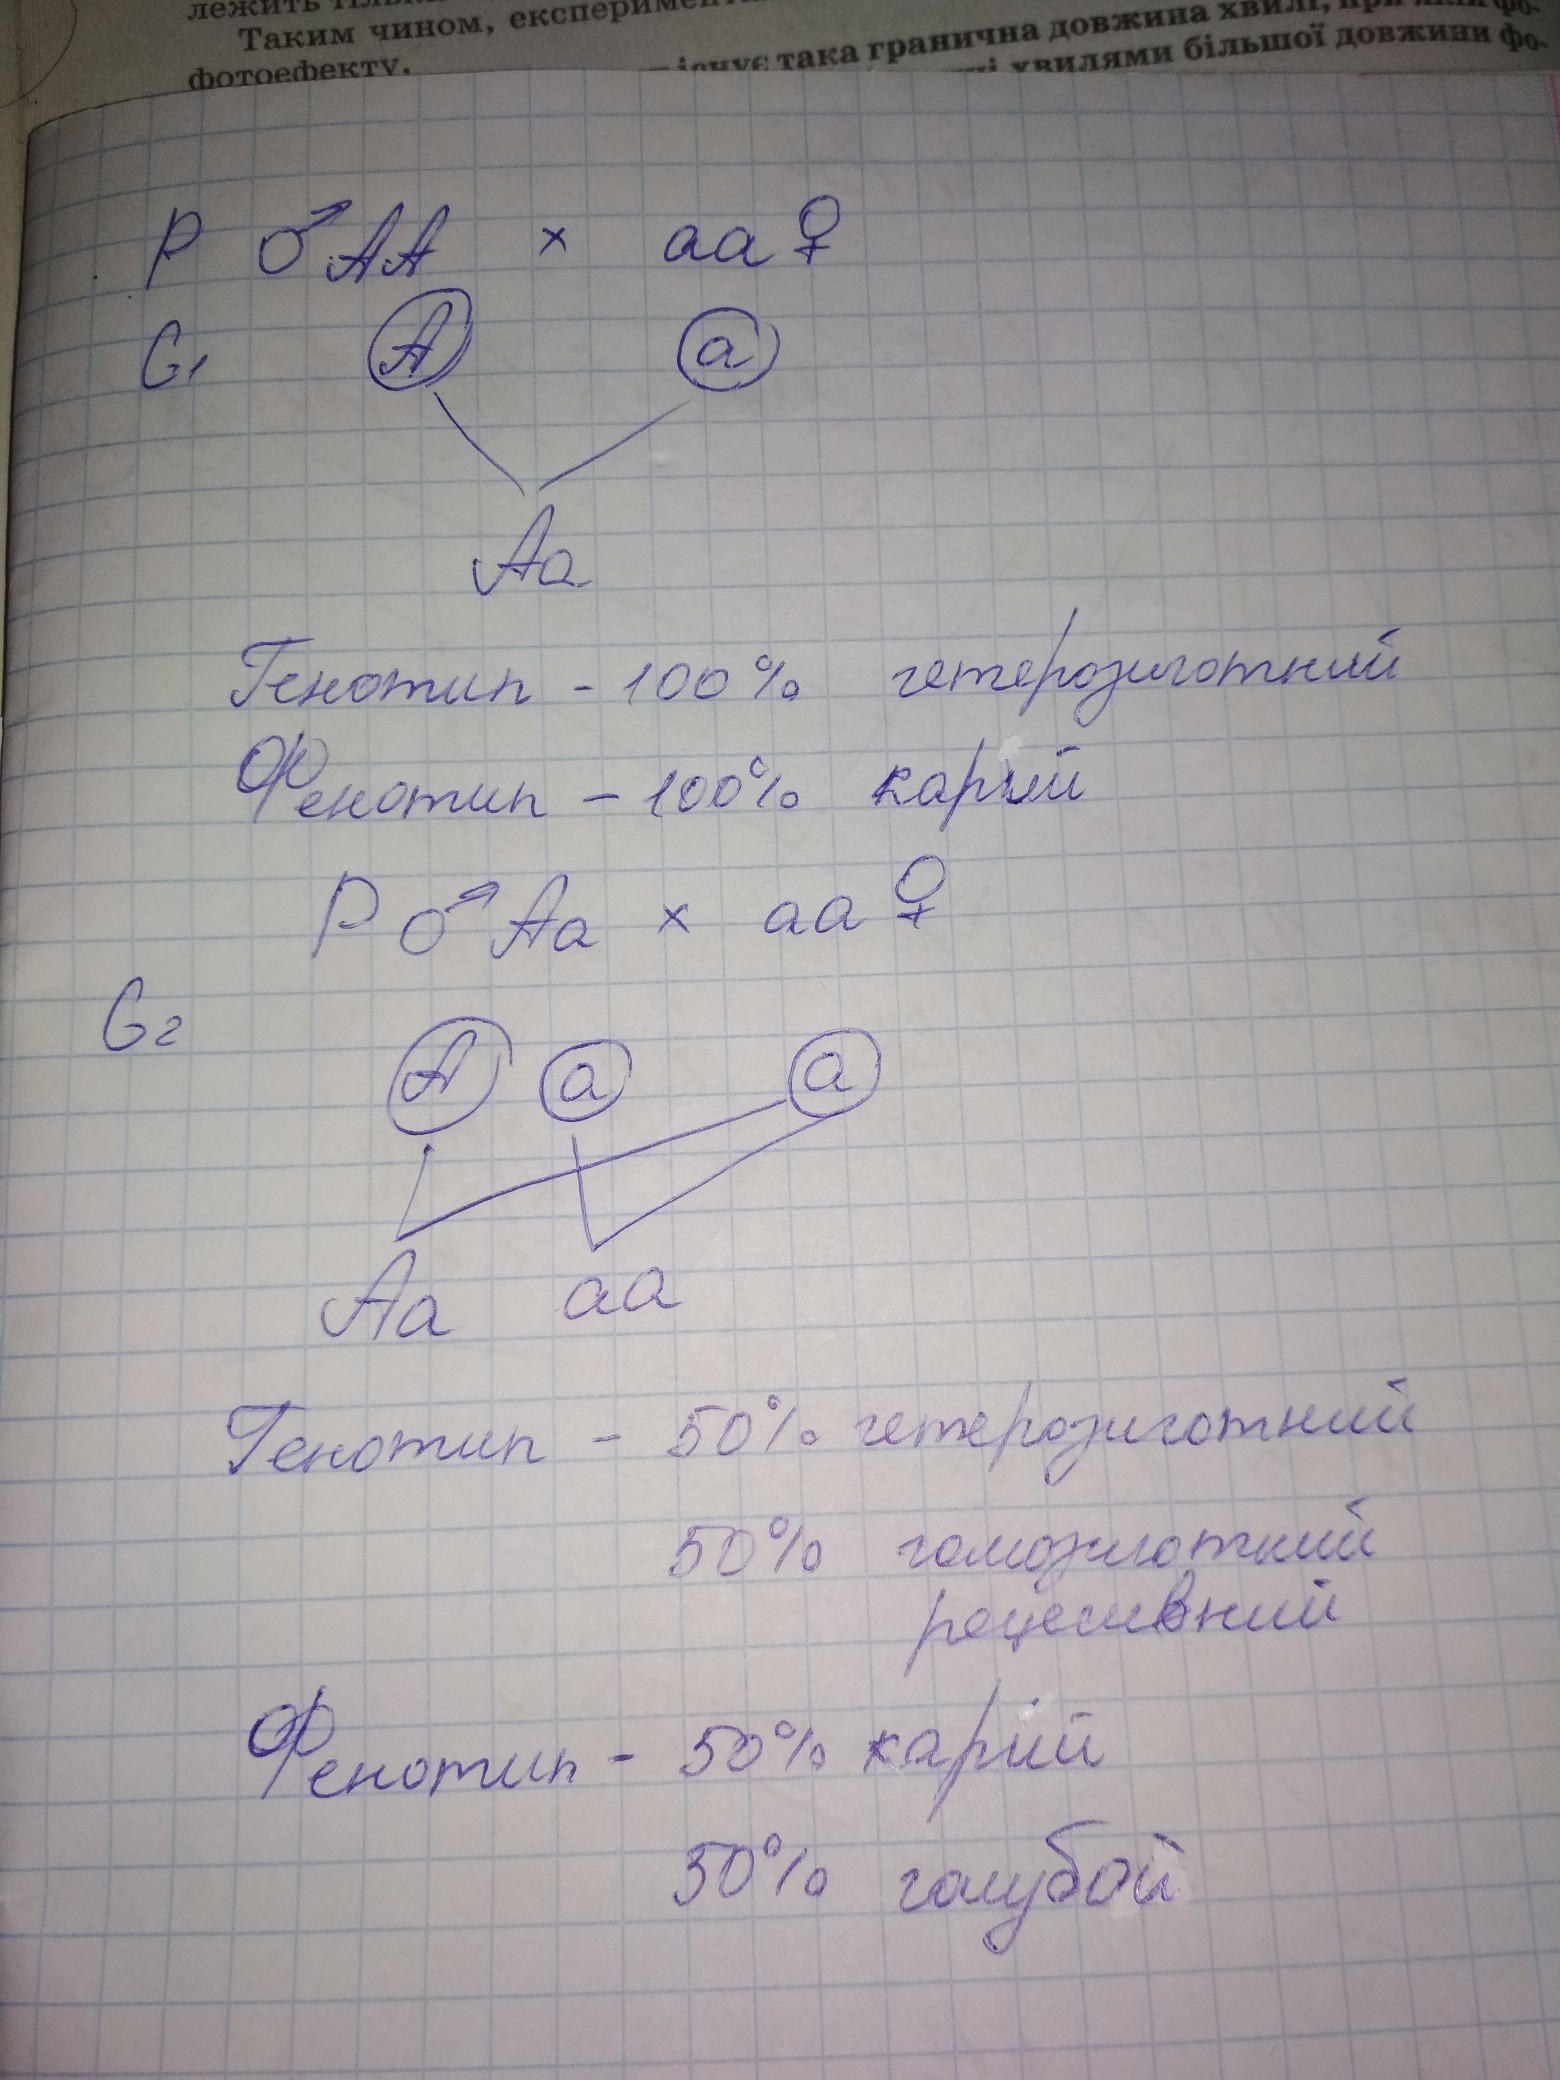 лежить тільки
Таким чином, експеримента
фотоефекту.
існує така гранична довжина хвилі, при якій фо-
хвилями більшої довжини фо-
P ♂ AA × aa ♀
G1 A a
Aa
Генотип - 100% гетерозиготний
Фенотип - 100% карий
P ♂ Aa × aa ♀
G2
A a a
Aa aa
Генотип - 50% гетерозиготний
50% гомозиготний
рецесивний
Фенотип - 50% карий
50% голубой